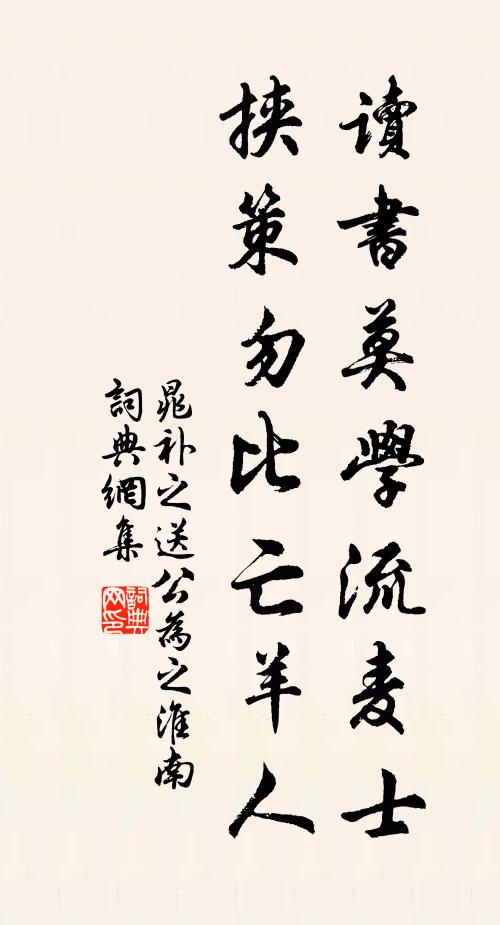 讀書莫學流麦士
挾策勿比亡羊人
晁补之送公為之淮南
詞典網集
詞典网印